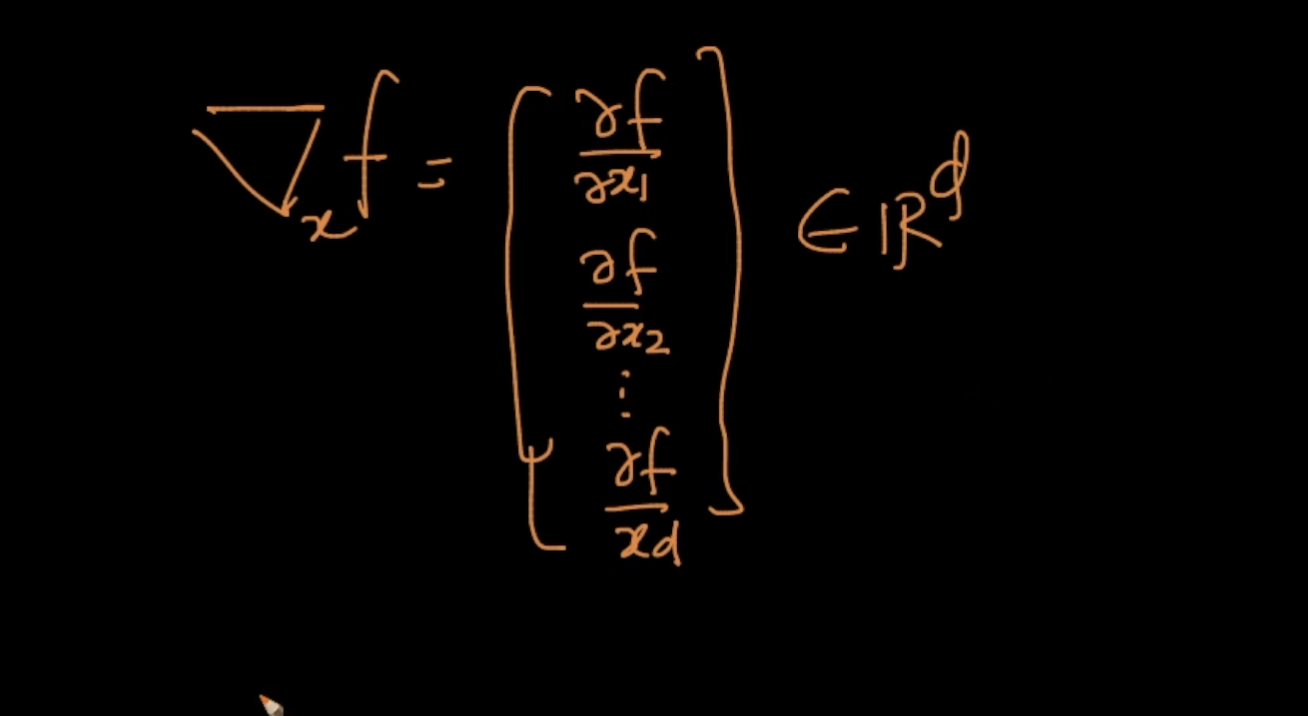 ∇ₓf = [ ∂f/∂x₁
∂f/∂x₂
⋮
∂f/xd ] ∈ ℝᵈ